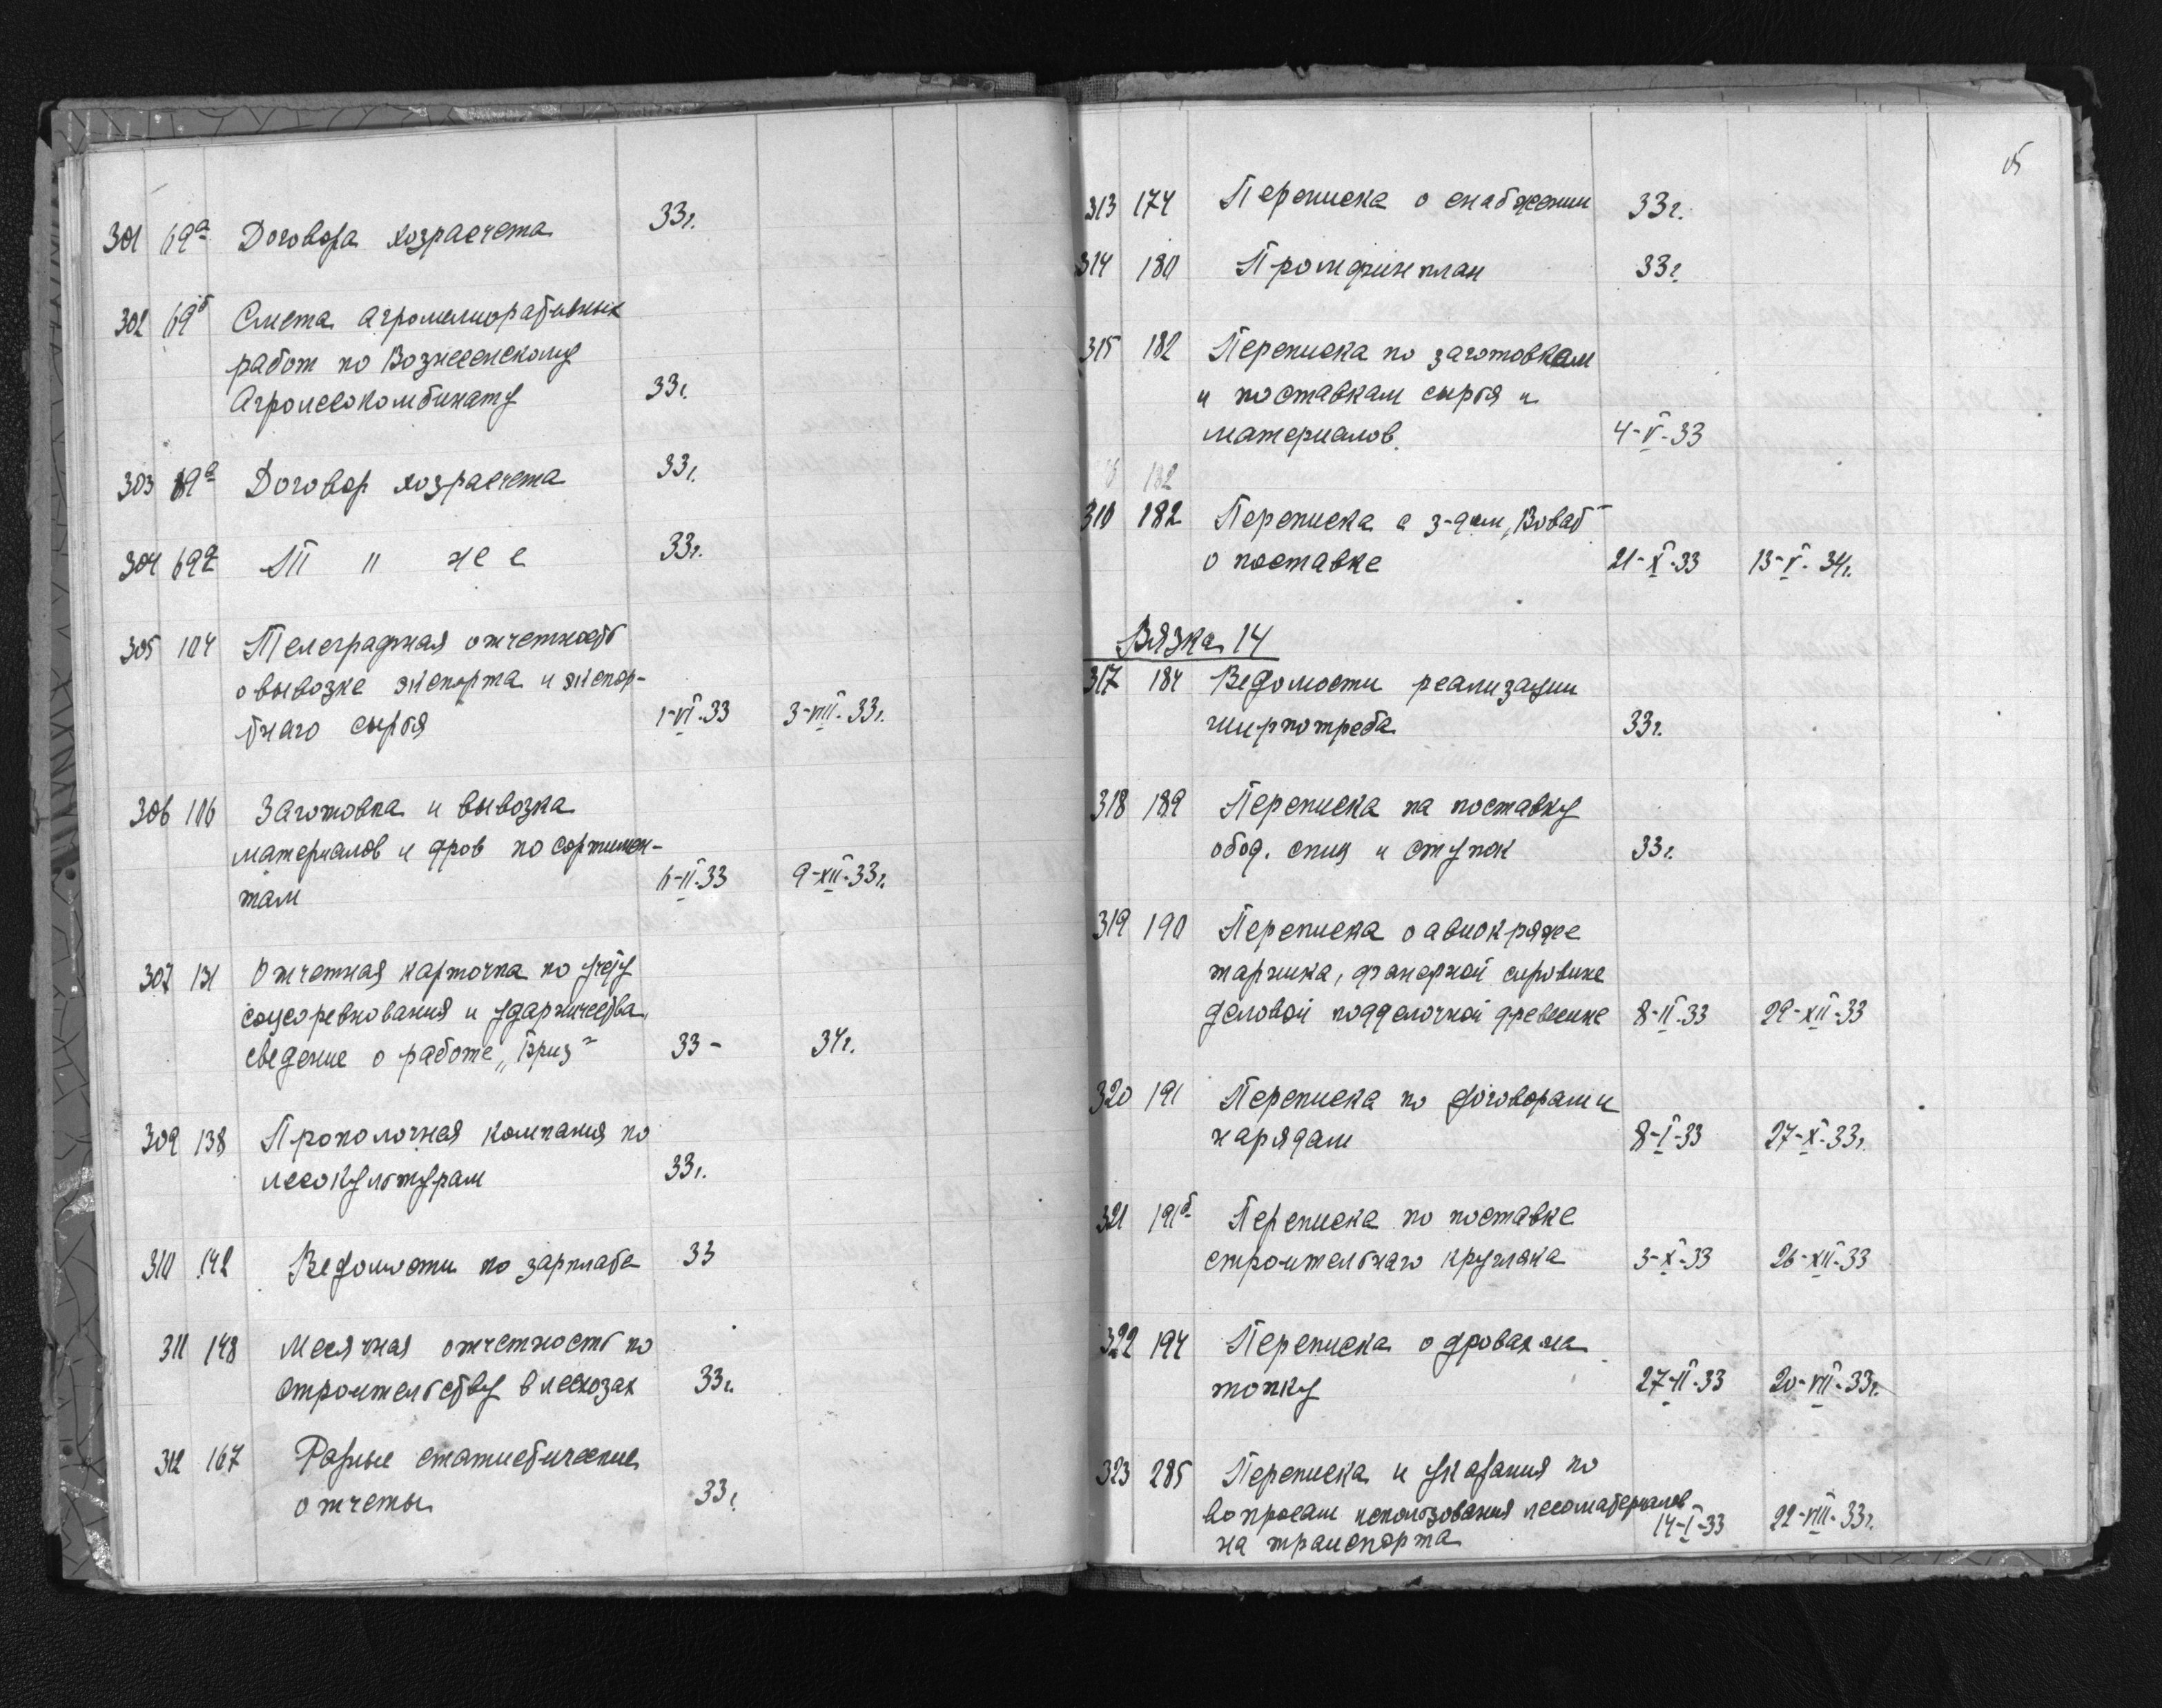 301 69а Договора хозрасчета 33г.
302 69б Смета агромелиоративных
работ по Вознесенскому
Агролесокомбинату 33г.
303 69в Договор хозрасчета 33г.
304 69г Т п же е 33г.
305 104 Телеграфная отчетность
о вывозке экспорта и экспор-
тнаго сырья 1-VI-33 3-VIII-33г.
306 106 Заготовка и вывозка
материалов и дров по сортимен-
там 6-II-33 9-XII-33г.
307 131 Отчетная карточка по учету
соцсоревнования и ударничества,
сведение о работе „Бриз" 33- 34г.
309 138 Прополочная компания по
лесокультурам 33г.
310 142 Ведомости по зарплате 33
311 148 Месячная отчетность по
строительству в лесхозах 33г.
312 167 Разные статистические
отчеты 33г.
5
313 174 Переписка о снабжении 33г.
314 180 Промфинплан 33г.
315 182 Переписка по заготовкам
и поставкам сырья и
материалов 4-V-33
182
316 182 Переписка с з-дом
о поставке 21-X-33 13-V-34г.
Вязка 14
317 184 Ведомости реализации
ширпотреба 33г.
318 189 Переписка на поставку
обод. спиц и ступок 33г.
319 190 Переписка о авиокряже
тарника, фанерной сировине
деловой подделочной древесине 8-II-33 29-XII-33
320 191 Переписка по договорам и
нарядам 8-I-33 27-X-33г.
321 191б Переписка по поставке
строительнаго кругляка 3-X-33 26-XII-33
322 194 Переписка о дровах на
топку 27-II-33 20-VII-33г.
323 285 Переписка и указания по
вопросам использования лесоматериалов
на транспорта 14-I-33 22-VIII-33г.